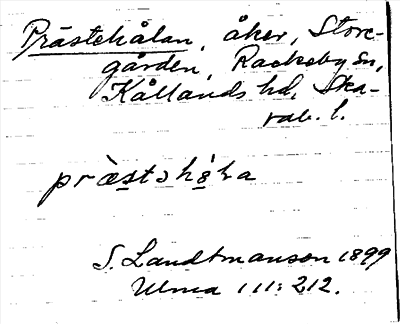 Prästehålan, åker, Store-
gården, Rackeby sn,
Kållands hd, Ska-
rab. l.
S. Landtmanson 1899
Ulma 111: 212.